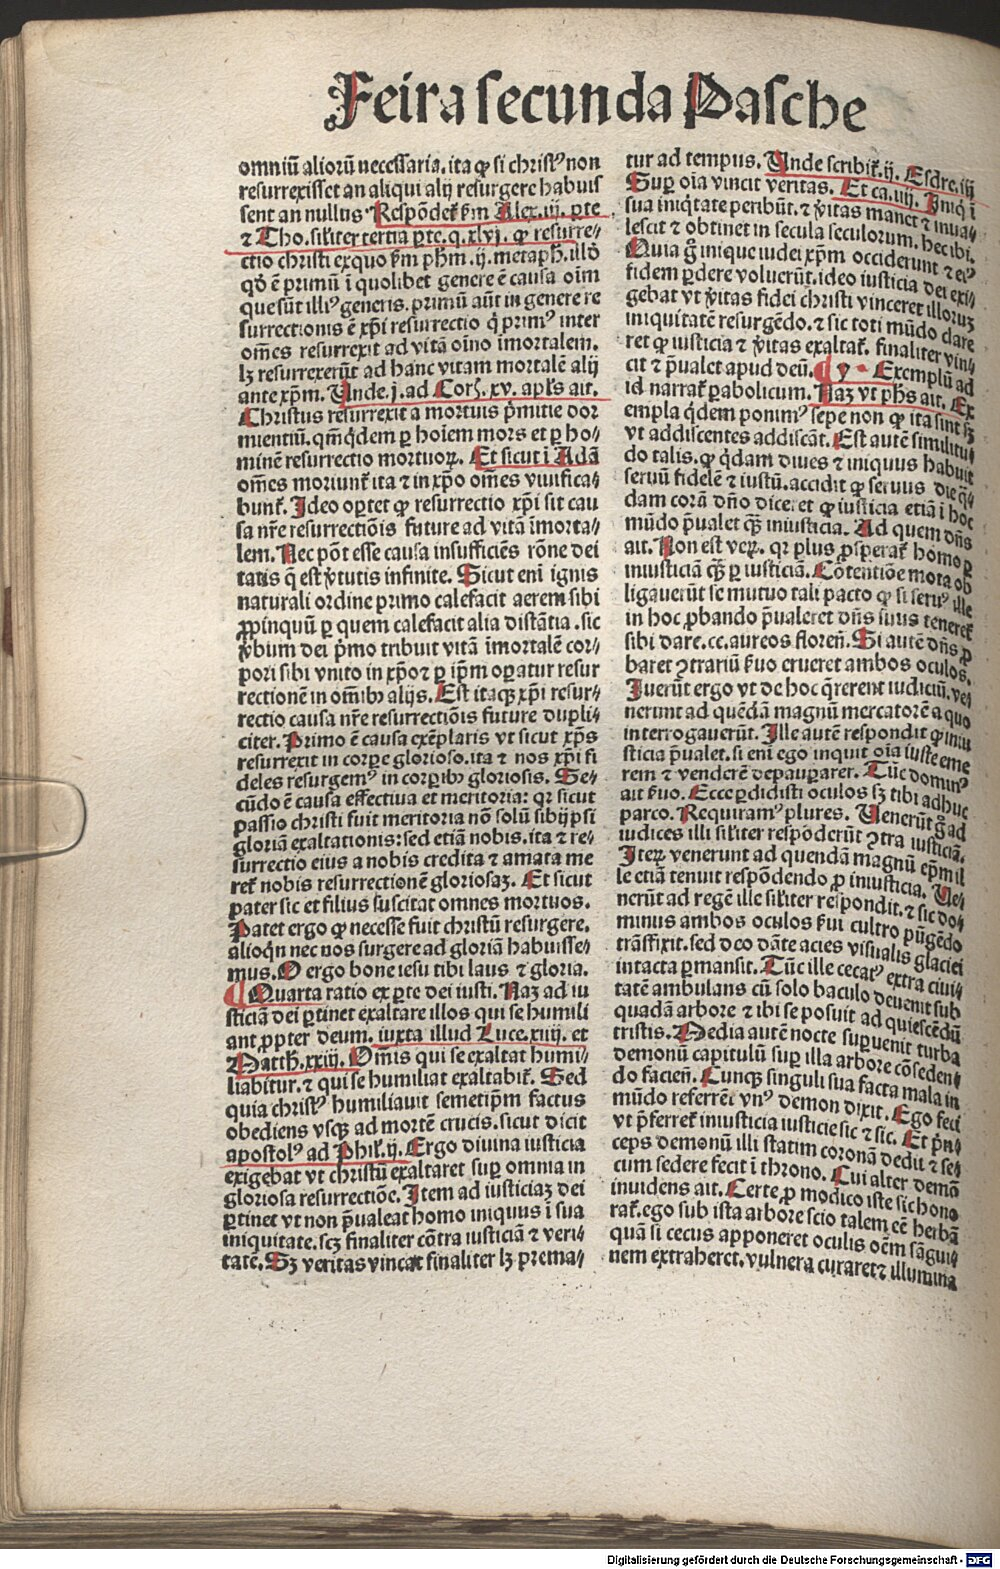 Feira secunda Pasche
omniũ aliorũ necessaria. ita ꝙ si christꝰ non
resurrexisset an aliqui alij resurgere habuis
sent an nullus Respõdeť ẽm Alex. iij. ꝑte
⁊ Tho. sikiter tertia ꝑte. q. xlvj. ꝙ resurre⸗
ctio christi ex quo ẽm phm. ij. metaph. illð
qð ẽ primũ ĩ quolibet genere ẽ causa oĩm
que sũt illiꝰ generis. primũ aũt in genere re
surrectionis ẽ xp̄i resurrectio q̇ primꝰ inter
oẽs resurrexit ad vitã oĩno ĩmortalem.
lꝫ resurrexerũt ad hanc vitam mortalẽ alij
ante xp̄m. Unde. j. ad Corĥ. xv. apl̃s ait.
Christus resurrexit a mortuis p̄mitie dor
mientiũ. qm̃ q̇dem ꝑ hoĩem mors et ꝑ ho⸗
minẽ resurrectio mortuoꝝ. Et sicut ĩ Adã
oẽs moriunť ita ⁊ in xp̄o oẽs viuifica⸗
bunť. Ideo oꝑtet ꝙ resurrectio xp̄i sit cau
sa nr̃e resurrectiõis future ad vitã ĩmorta⸗
lem. Nec põt esse causa insufficiẽs rõne dei
tatis q̃ est ṽtutis infinite. Sicut eni ignis
naturali ordine primo calefacit aerem sibi
ꝓpinquũ ꝑ quem calefacit alia distãtia. sic
ṽbum dei p̄mo tribuit vitã ĩmortalẽ cor⸗
pori sibi vnito in xp̄o ⁊ ꝑ ip̄m oꝑatur resur
rectionẽ in oĩbꝰ alijs. Est itaqꝫ xp̄i resur⸗
rectio causa nr̃e resurrectiõis future dupli⸗
citer. Primo ẽ causa exẽplaris vt sicut xp̄s
resurrexit in corꝑe glorioso. ita ⁊ nos xp̄i fi
deles resurgemꝰ in corꝑibꝰ gloriosis. Se⸗
cũdo ẽ causa effectiua et meritoria: qꝛ sicut
passio christi fuit meritoria nõ solũ sibijpsi
gloriã exaltationis: sed etiã nobis. ita ⁊ re⸗
surrectio eius a nobis credita ⁊ amata me
reť nobis resurrectionẽ gloriosaꝫ. Et sicut
pater sic et filius suscitat omnes mortuos.
Patet ergo ꝙ necesse fuit christũ resurgere.
alioq̇n nec nos surgere ad gloriã habuisse⸗
mus. O ergo bone iesu tibi laus ⁊ gloria.
¶ Quarta ratio ex ꝑte dei iusti. Naꝫ ad iu
sticiã dei ꝑtinet exaltare illos qui se humili
ant ꝓpter deum. iuxta illud Luce. xviij. et
Matth. xxiij. Omnis qui se exaltat humi⸗
liabitur. ⁊ qui se humiliat exaltabiť. Sed
quia christꝰ humiliauit semetip̄m factus
obediens vsqꝫ ad mortẽ crucis. sicut dicit
apostolꝰ ad Phiľ. ij. Ergo diuina iusticia
exigebat vt christũ exaltaret suꝑ omnia in
gloriosa resurrectiõe. Item ad iusticiaꝫ dei
ꝑtinet vt non p̄ualeat homo iniquus ĩ sua
iniquitate. scꝫ finaliter cõtra iusticiã ⁊ veri⸗
tatẽ. Sꝫ veritas vincat finaliter lꝫ prema⸗
tur ad tempus. Unde scribiť. ij. Esdre. iij
Suꝑ oĩa vincit veritas. Et ca. iiij. Iniq̇ ĩ
sua iniq̇tate peribũt. ⁊ ṽitas manet ⁊ inua⸗
lescit ⁊ obtinet in secula seculorum. hec ibi.
Quia g̊ inique iudei xp̄m occiderunt ⁊ eiꝰ
fidem ꝑdere voluerũt. ideo iusticia dei exi⸗
gebat vt ṽitas fidei christi vinceret illoruꝫ
iniquitatẽ resurgẽdo. ⁊ sic toti mũdo clare
ret ꝙ iusticia ⁊ ṽitas exaltať. finaliter vin⸗
cit ⁊ p̄ualet apud deũ. ¶ y Exemplũ ad
id narrať ꝑabolicum. Naꝫ vt ph̃s ait. Ex
empla q̇dem ponimꝰ sepe non ꝙ ita sint sꝫ
vt addiscentes addiscãt. Est autẽ similitu⸗
do talis. ꝙ q̇dam diues ⁊ iniquus habuit
seruũ fidelẽ ⁊ iustũ. accidit ꝙ seruus die q̃⸗
dam corã dño diceret ꝙ iusticia etiã ĩ hoc
mũdo p̄ualet q̃ꝫ iniusticia. Ad quem dñs
ait. Non est veꝝ. qꝛ plus ꝓsperať homo ꝑ
iniusticiã q̃ꝫ ꝑ iusticiã. Cõtentiõe mota ob
ligauerũt se mutuo tali pacto ꝙ si seruꝰ ille
in hoc ꝓbando p̄ualeret dñs suus tenereť
sibi dare. cc. aureos floreñ. Si autẽ dñs ꝓ
baret ↄ̃trariũ ẽuo erueret ambos oculos.
Iuerũt ergo vt de hoc q̃rerent iudiciũ. ve⸗
nerunt ad quẽdã magnũ mercatorẽ a quo
interrogauerũt. Ille autẽ respondit ꝙ iniu
sticia p̄ualet. si eni ego inquit oĩa iuste eme
rem ⁊ venderẽ depauꝑarer. Tũc dominꝰ
ait ẽuo. Ecce ꝑdidisti oculos sꝫ tibi adhuc
parco. Requiramꝰ plures. Uenerũt g̊ ad
iudices illi sikiter respõderũt ↄ̃tra iusticiã.
Iteꝝ venerunt ad quendã magnũ ep̄m il
le etiã tenuit respõdendo ꝓ iniusticia. Ue⸗
nerũt ad regẽ ille sikiter respondit. ⁊ sic do⸗
minus ambos oculos ẽui cultro pũgẽdo
trãsfixit. sed deo dãte acies visualis glaciei
intacta ꝑmansit. Tũc ille cecatꝰ extra ciui⸗
tatẽ ambulans cũ solo baculo deuenit sub
quadã arbore ⁊ ibi se posuit ad quiescẽdũ
tristis. Media autẽ nocte suꝑuenit turba
demonũ capitulũ suꝑ illa arbore cõsedent
do facieñ. Cunqꝫ singuli sua facta mala in
mũdo referrẽt vnꝰ demon dixit. Ego feci
vt p̄ferreť iniusticia iusticie sic ⁊ sic. Et p̄n⸗
ceps demonũ illi statim coronã dedit ⁊ se⸗
cum sedere fecit ĩ throno. Cui alter demõ
inuidens ait. Certe ꝓ modico iste sic hono
rať. ego sub ista arbore scio talem eẽ herbã
quã si cecus apponeret oculis oẽm sãgui⸗
nem extraheret. vulnera curaret ⁊ illumina
Digitalisierung gefördert durch die Deutsche Forschungsgemeinschaft - DFG